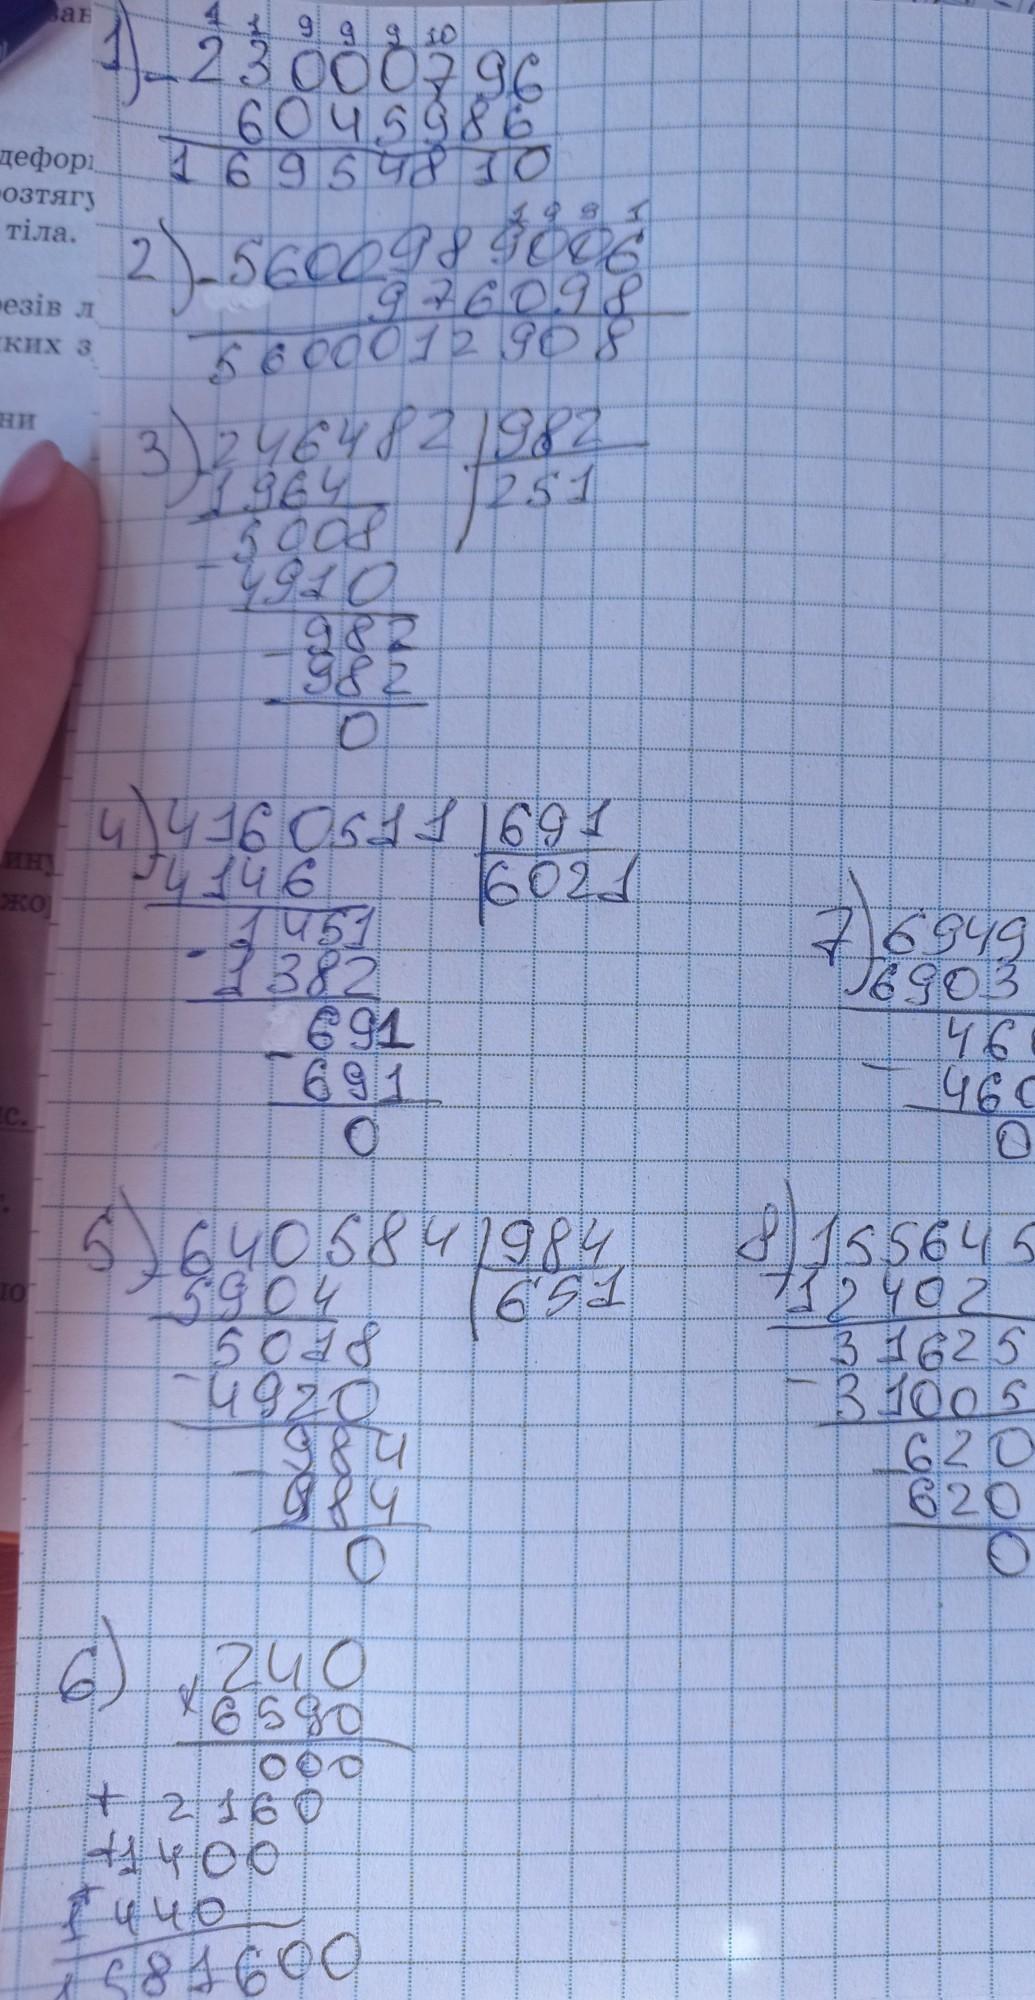 дефор
розтягу
тіла.
резів л
ких з
ни
1) 1 1 9 9 9 10
- 23000796
6045986
16954810
2) 1 9 9 1
- 56009889006
976098
5600012908
3) 246482 | 982
1964 | 251
5008
- 4910
- 982
982
0
4) 4160511 | 691
4146 | 6021
1451
- 1382
691
- 691
0
5) 640584 | 984
5904 | 651
5018
- 4920
- 984
984
0
6) 240
x 6590
000
+ 2160
+1400
+ 1440
1581600
7) 6949
6903
46
- 460
0
8) 155645
- 12402
31625
- 31005
- 620
620
0